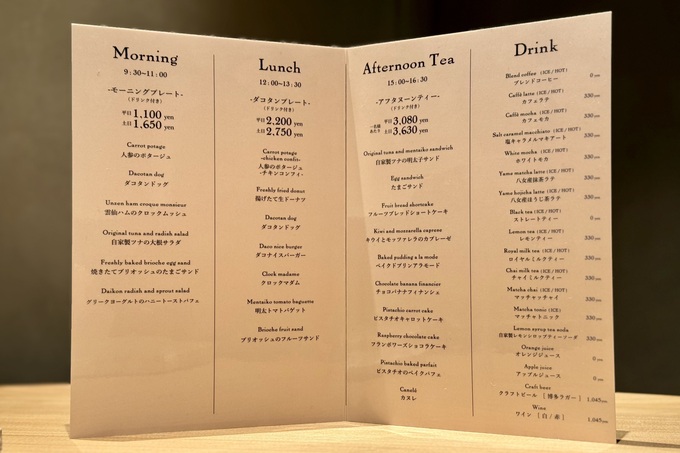 Morning
9:30~11:00
-モーニングプレート-
(ドリンク付き)
平日 1,100 yen
土日 1,650 yen
Carrot potage
人参のポタージュ
Dacotan dog
ダコタンドッグ
Unzen ham croque monsieur
雲仙ハムのクロックムッシュ
Original tuna and radish salad
自家製ツナの大根サラダ
Freshly baked brioche egg sand
焼きたてブリオッシュのたまごサンド
Daikon radish and sprout salad
グリークヨーグルトのハニートーストパフェ
Lunch
12:00~13:30
-ダコタンプレート-
(ドリンク付き)
平日 2,200 yen
土日 2,750 yen
Carrot potage
-chicken confit-
人参のポタージュ
-チキンコンフィ-
Freshly fried donut
揚げたて生ドーナツ
Dacotan dog
ダコタンドッグ
Daco nice burger
ダコナイスバーガー
Clock madame
クロックマダム
Mentaiko tomato baguette
明太トマトバゲット
Brioche fruit sand
ブリオッシュのフルーツサンド
Afternoon Tea
15:00~16:30
-アフタヌーンティー-
(ドリンク付き)
平日 3,080 yen
土日 3,630 yen
Original tuna and mentaiko sandwich
自家製ツナの明太子サンド
Egg sandwich
たまごサンド
Fruit bread shortcake
フルーツブレッドショートケーキ
Kiwi and mozzarella caprese
キウイとモッツァレラのカプレーゼ
Baked pudding a la mode
ベイクドプリンアラモード
Chocolate banana financier
チョコバナナフィナンシェ
Pistachio carrot cake
ピスタチオキャロットケーキ
Raspberry chocolate cake
フランボワーズショコラケーキ
Pistachio baked parfait
ピスタチオのベイクパフェ
Canelé
カヌレ
Drink
Blend coffee (ICE / HOT)
ブレンドコーヒー 0 yen
Caffè latte (ICE / HOT)
カフェラテ 330 yen
Caffè mocha (ICE / HOT)
カフェモカ 330 yen
Salt caramel macchiato (ICE / HOT)
塩キャラメルマキアート 330 yen
White mocha (ICE / HOT)
ホワイトモカ 330 yen
Yame matcha latte (ICE / HOT)
八女産抹茶ラテ 330 yen
Yame hojicha latte (ICE / HOT)
八女産ほうじ茶ラテ 330 yen
Black tea (ICE / HOT)
ストレートティー 0 yen
Lemon tea (ICE / HOT)
レモンティー 330 yen
Royal milk tea (ICE / HOT)
ロイヤルミルクティー 330 yen
Chai milk tea (ICE / HOT)
チャイミルクティー 330 yen
Matcha chai (ICE / HOT)
マッチャッチャイ 330 yen
Matcha tonic (ICE / HOT)
マッチャトニック 330 yen
Lemon syrup tea soda
自家製レモンシロップティーソーダ 330 yen
Orange juice
オレンジジュース 0 yen
Apple juice
アップルジュース 0 yen
Craft beer
クラフトビール [博多ラガー] 1,045 yen
Wine
ワイン [白 / 赤] 1,045 yen